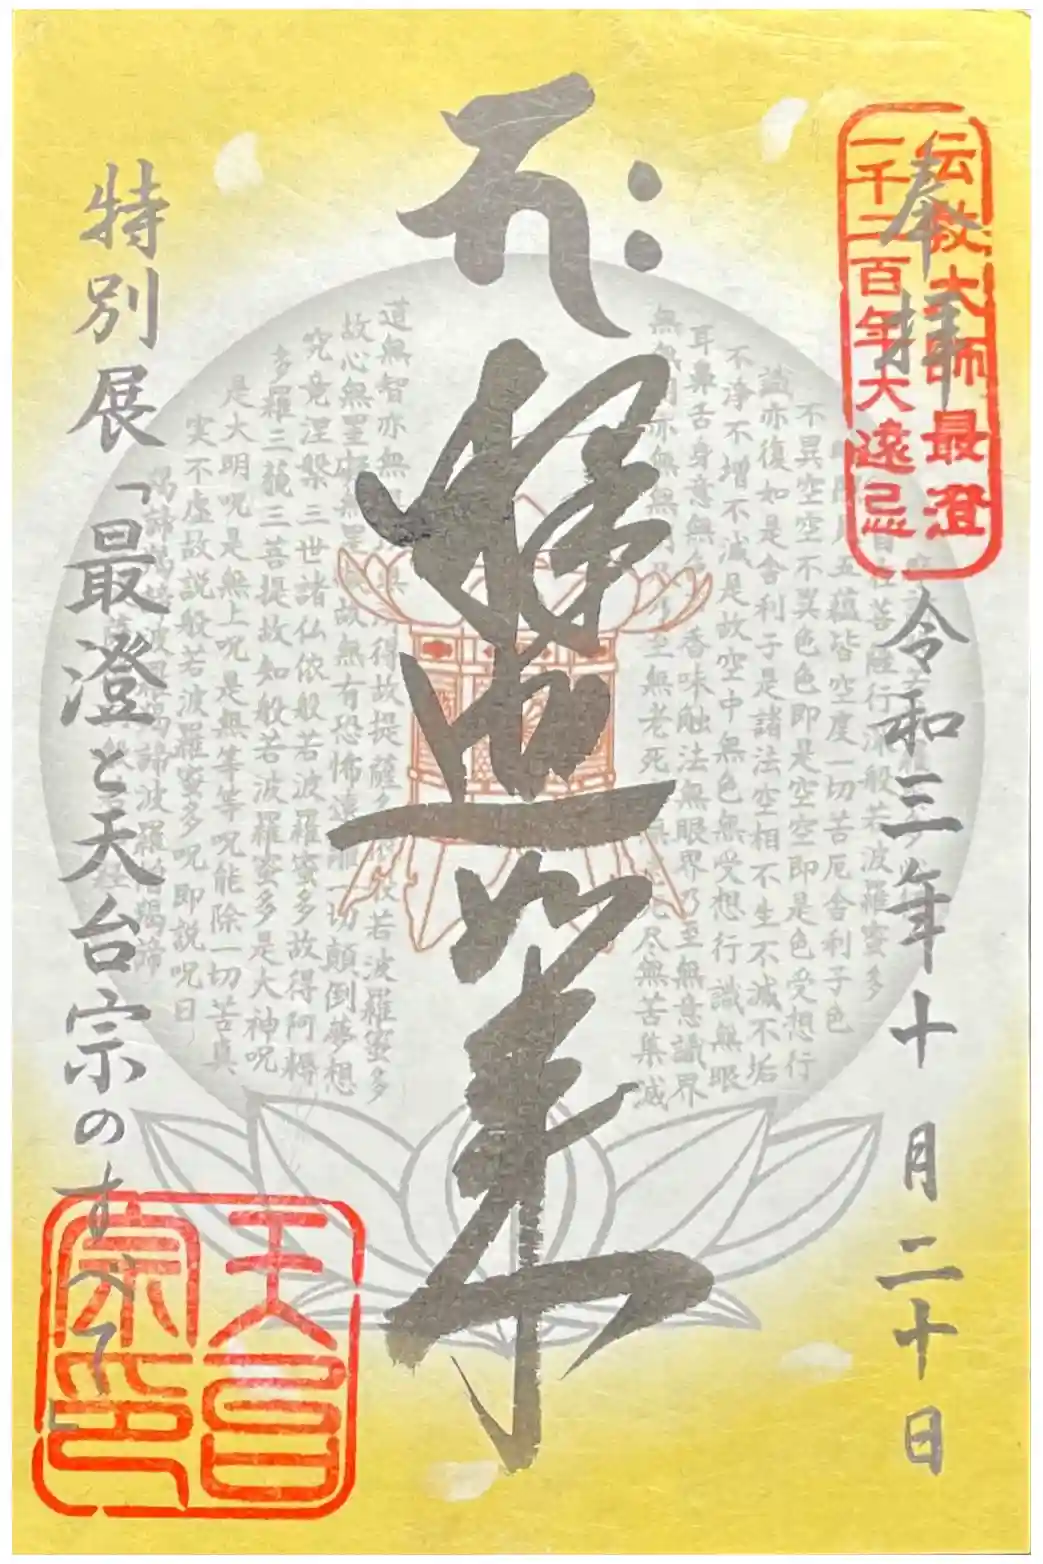 奉拝
伝教大師最澄
一千二百年大遠忌
令和三年十月二十日
如来
菩薩行深般若波羅蜜多
五蘊皆空度一切苦厄舎利子色
不異空空不異色色即是空空即是色受想行
識亦復如是舎利子是諸法空相不生不滅不垢
不浄不増不減是故空中無色無受想行識無眼
耳鼻舌身意無香味触法無眼界乃至無意識界
無無明亦無無至無老死尽無苦集滅
道無智亦無得故提薩般若波羅蜜多
故心無罣礙無罣故無有恐怖遠離一切顛倒夢想
究竟涅槃三世諸仏依般若波羅蜜多故得阿耨
多羅三藐三菩提故知般若波羅蜜多是大神呪
是大明呪是無上呪是無等等呪能除一切苦真
実不虚故説般若波羅蜜多呪即説呪曰
羯諦羯諦波羅羯諦波羅羯諦
特別展「最澄と天台宗のすべて」
天台宗印